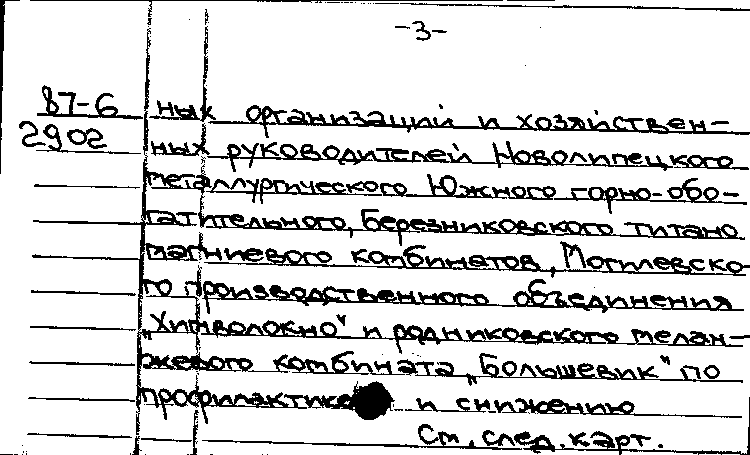 -3-
87-6 ных организаций и хозяйствен-
2902 ных руководителей Новолипецкого
металлургического Южного горно-обо-
гатительного, Березниковского титано
магниевого комбинатов, Могилевско-
го производственного объединения
"Химволокно" и родниковского мелан-
жевого комбината "Большевик" по
профилактике и снижению
См. след. карт.